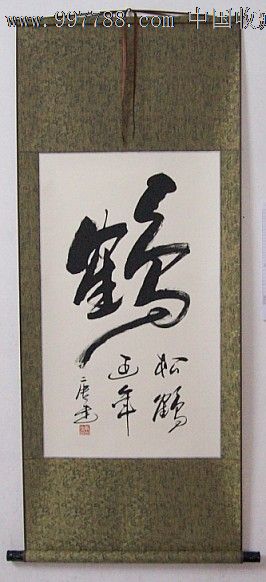 www.997788.com 中国收
鶴
松鶴
延年